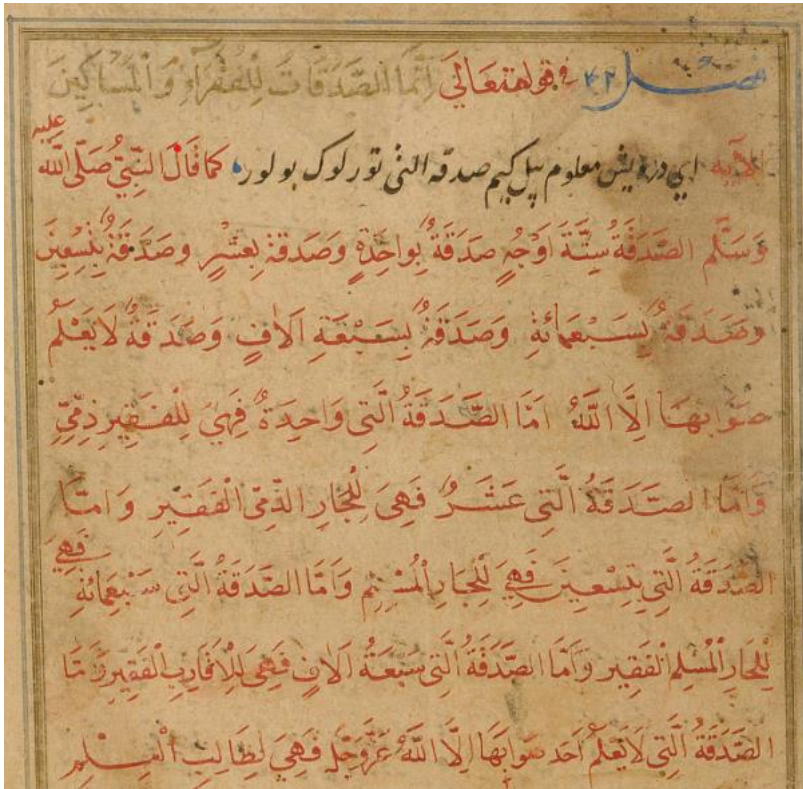 فصل ٤٢ في قوله تعالى إِنَّمَا الصَّدَقَاتُ لِلْفُقَرَاءِ وَالْمَسَاكِينِ
الآيه اي درويش معلوم بيل كيم صدقه التى تورلوك بولور كَمَا قَالَ النَّبِيُّ صَلَّى اللّٰهُ عليه
وَسَلَّمَ الصَّدَقَةُ سِتَّةَ اَوْجُهٍ صَدَقَةٌ بِوَاحِدَةٍ وَصَدَقَةٌ بِعَشْرٍ وَصَدَقَةٌ بِتِسْعِينَ
وَصَدَقَةٌ بِسَبْعِمائَةِ وَصَدَقَةٌ بِسَبْعَةِ اَلَافٍ وَصَدَقَةٌ لَا يَعْلَمُ
صَوَابهَا اِلَّا اللّٰهُ اَمَّا الصَّدَقَةُ الَّتِي وَاحِدَةٌ فَهِيَ لِلْفَقِيرِ ذِمِّيٍّ
وَاَمَّا الصَّدَقَةُ الَّتِي عَشَرٌ فَهِيَ لِلْجَارِ الذِّمِّيِّ الْفَقِيْرِ وَامَّا
الصَّدَقَةُ الَّتِي بِتِسْعِينَ فَهِيَ لِلْجَارِ الْمُسْلِمِ وَاَمَّا الصَّدَقَةُ الَّتِي سَبْعِمائَةِ فَهِيَ
لِلْجَارِ الْمُسْلِمِ الْفَقِيرِ وَاَمَّا الصَّدَقَةُ الَّتِي سَبْعَةُ اَلَافٍ فَهِيَ لِلْاَقَارِبِ الْفَقِيرِ وَاَمَّا
الصَّدَقَةُ الَّتِي لَا يَعْلَمُ اَحَد صَوَابَهَا اِلَّا اللّٰهُ عَزَّوَجَلَّ فَهِيَ لِطَالِبِ الْعِلْمِ